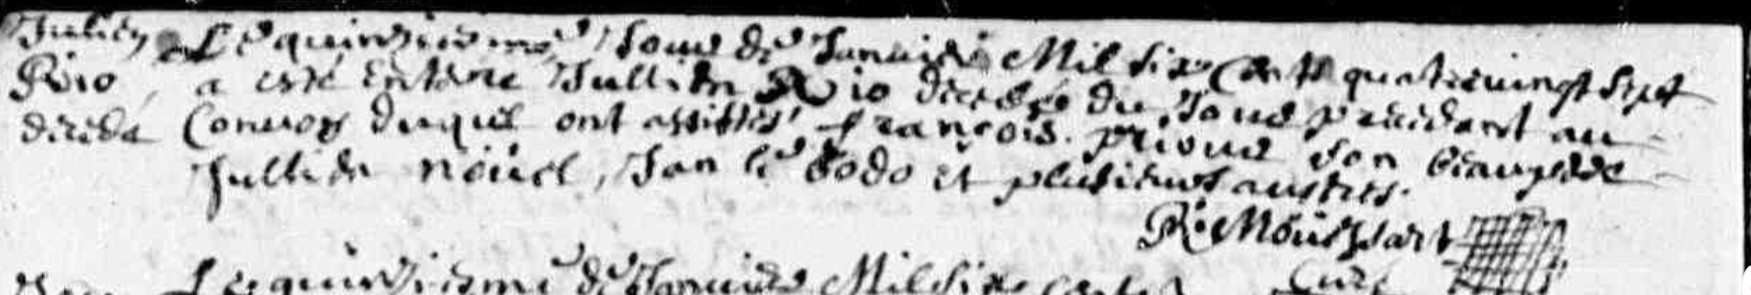 Julien Le quinziesme Jour de Janvier Mil six Cents quatrevingt Sept
Rio, a esté Enterre Jullien Rio decedé du Jour precedent au
decede Convoy duquel ont assistés françois prioux son beaupere
Jullien nöüel, Jan le dodo et plusieurs austres.
R. Moüessart
Curé
Le quinziesme de Janvier Mil six Cents